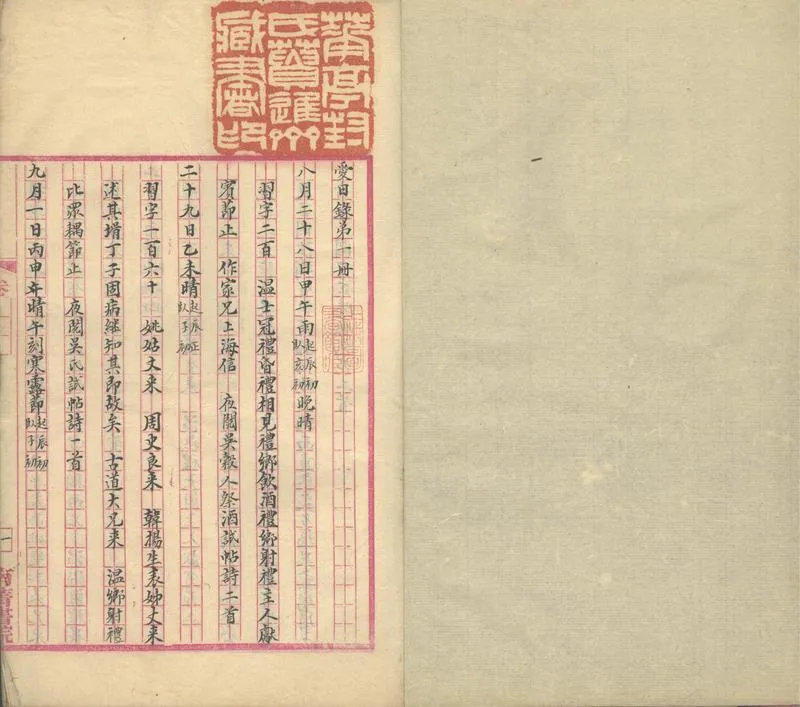 愛日錄第一冊
八月二十八日甲午雨起辰初臥亥初晚晴
習字二百 溫士冠禮昏禮相見禮鄉飲酒禮鄉射禮主人獻
賓節止 作家兄上海信 夜閱吳穀人祭酒試帖詩二首
二十九日乙未晴起辰正臥子初
習字一百六十 姚姑丈来 周史良来 韓揚生表姊丈来
述其壻丁子固病繼知其即故矣 古道大兄来 溫鄉射禮
比眾耦節止 夜閱吳氏試帖詩一首
九月一日丙申晴午刻寒露節起辰初臥子初
一